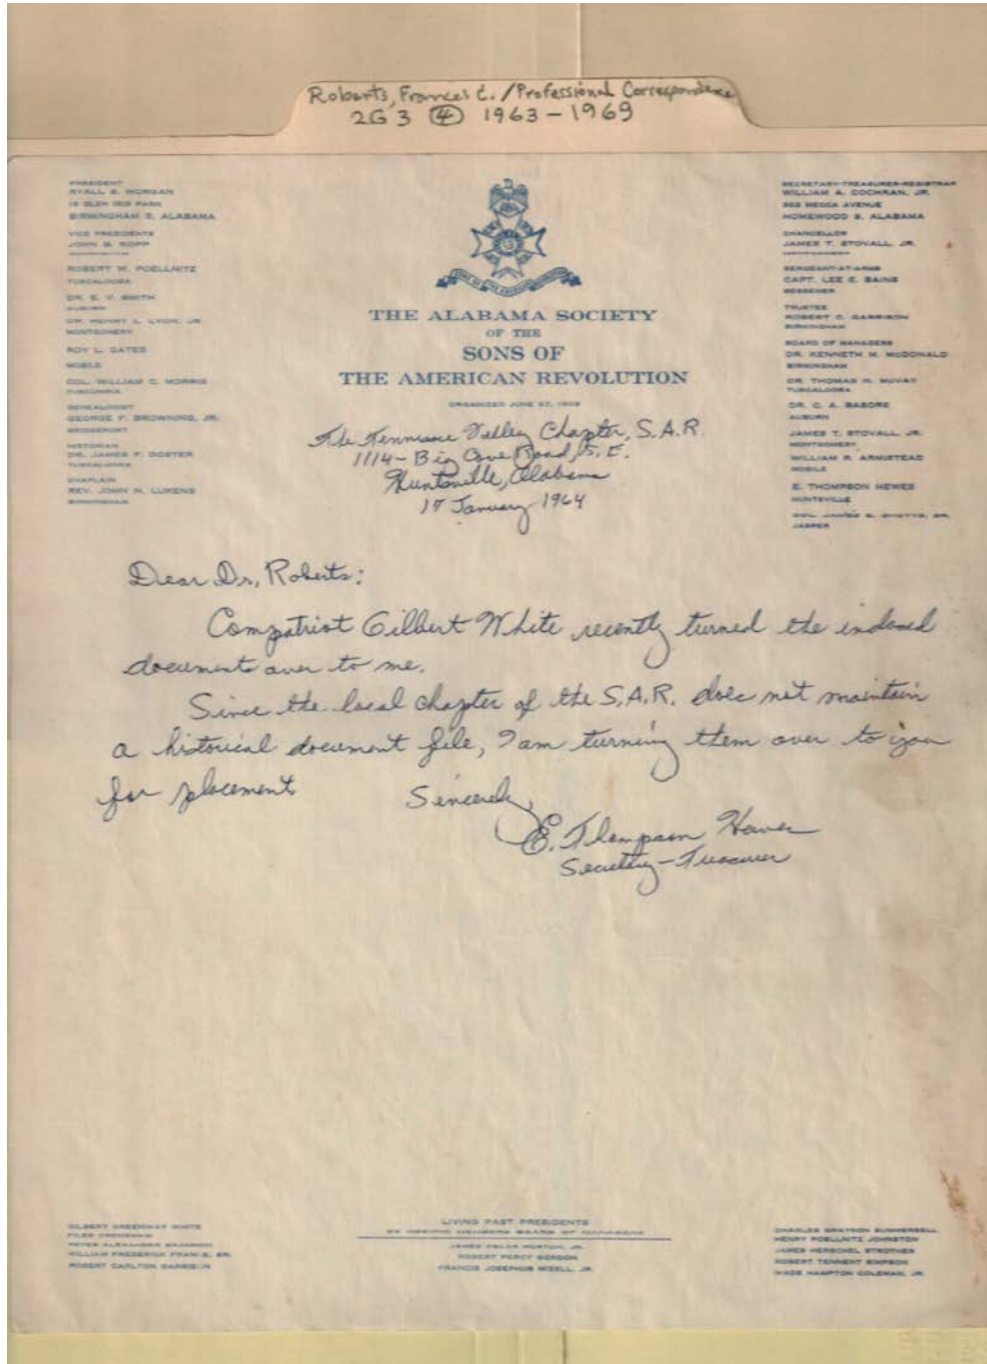 Roberts, Frances C. / Professional Correspondence
2G3 ④ 1963-1969
PRESIDENT
RYALL S. MORGAN
19 GLEN IRIS PARK
BIRMINGHAM 5, ALABAMA
VICE PRESIDENTS
JOHN G. ROPP
ROBERT W. POELLNITZ
TUSCALOOSA
DR. E. V. SMITH
AUBURN
DR. HENRY L. LYON, JR.
MONTGOMERY
ROY L. GATES
MOBILE
COL. WILLIAM C. MORRIS
TUSCUMBIA
GENEALOGIST
GEORGE F. BROWNING, JR.
BRIDGEPORT
HISTORIAN
DR. JAMES F. DOSTER
TUSCALOOSA
CHAPLAIN
REV. JOHN N. LUKENS
BIRMINGHAM
THE ALABAMA SOCIETY
OF THE
SONS OF
THE AMERICAN REVOLUTION
ORGANIZED JUNE 27, 1903
SECRETARY-TREASURER-REGISTRAR
WILLIAM A. COCHRAN, JR.
302 MECCA AVENUE
HOMEWOOD 9, ALABAMA
CHANCELLOR
JAMES T. STOVALL, JR.
MONTGOMERY
SERGEANT-AT-ARMS
CAPT. LEE E. BAINS
BESSEMER
TRUSTEE
ROBERT C. GARRISON
BIRMINGHAM
BOARD OF MANAGERS
DR. KENNETH M. McDONALD
BIRMINGHAM
DR. THOMAS N. McVAY
TUSCALOOSA
DR. C. A. BASORE
AUBURN
JAMES T. STOVALL, JR.
MONTGOMERY
WILLIAM R. ARMISTEAD
MOBILE
E. THOMPSON HEWES
HUNTSVILLE
COL. JAMES E. SHOTTS, SR.
JASPER
The Tennessee Valley Chapter, S.A.R.
1114- Big Cove Road, S.E.
Huntsville, Alabama
17 January 1964
Dear Dr. Roberts:
Compatriot Gilbert White recently turned the inclosed
documents over to me.
Since the local chapter of the S.A.R. does not maintain
a historical document file, I am turning them over to you
for placement
Sincerely,
E. Thompson Hewes
Secretary-Treasurer
GILBERT GREENWAY WHITE
FILES CRENSHAW
PETER ALEXANDER BRANNON
WILLIAM FREDERICK FRANKE, SR.
ROBERT CARLTON GARRISON
LIVING PAST PRESIDENTS
EX OFFICIO MEMBERS BOARD OF MANAGERS
JAMES OSCAR HORTON, JR.
ROBERT PERCY GORDON
FRANCIS JOSEPHUS MIZELL, JR.
CHARLES GRAYSON SUMMERSELL
HENRY POELLNITZ JOHNSTON
JAMES HERSCHEL STROTHER
ROBERT TENNENT SIMPSON
WADE HAMPTON COLEMAN, JR.